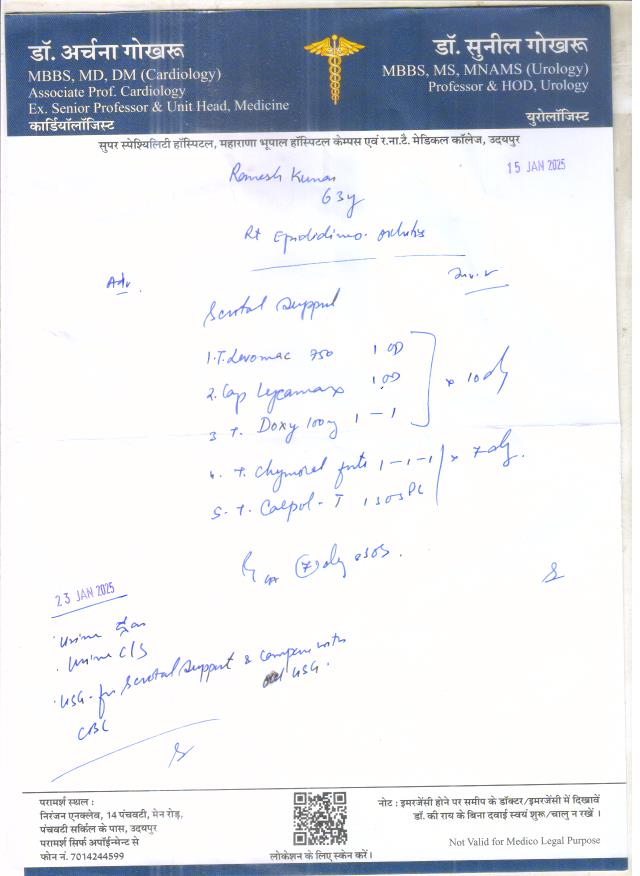 डॉ. अर्चना गोखरू
MBBS, MD, DM (Cardiology)
Associate Prof. Cardiology
Ex. Senior Professor & Unit Head, Medicine
कार्डियॉलॉजिस्ट
डॉ. सुनील गोखरू
MBBS, MS, MNAMS (Urology)
Professor & HOD, Urology
युरोलॉजिस्ट
सुपर स्पेश्यिलिटी हॉस्पिटल, महाराणा भूपाल हॉस्पिटल केम्पस एवं र.ना.टै. मेडिकल कॉलेज, उदयपुर
15 JAN 2025
Ramesh Kumar
63y
Rt Epididimo-orchitis
Adv.
Scrotal support
1. T. Levomac 750 1 OD
2. Cap Lycamax 1 OD
3 T. Doxy 100mg 1 - 1
x 10 dy
4. T. Chymoral forte 1-1-1
x 7 dy.
5. T. Calpol-T 1 SOS PC
23 JAN 2025
Urine
Urine C/S
USG - for Scrotal support & compare with
old USG.
CBC
परामर्श स्थल :
निरंजन एनक्लेव, 14 पंचवटी, मेन रोड़,
पंचवटी सर्किल के पास, उदयपुर
परामर्श सिर्फ अपॉईन्मेन्ट से
फोन नं. 7014244599
लोकेशन के लिए स्केन करें।
नोट : इमरजेंसी होने पर समीप के डॉक्टर/इमरजेंसी में दिखावें
डॉ. की राय के बिना दवाई स्वयं शुरू/चालु न रखें ।
Not Valid for Medico Legal Purpose